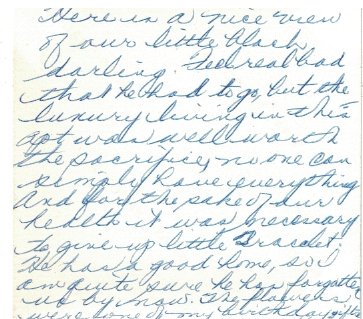 Here is a nice view
of our little black
darling. Feel real bad
that he had to go, but the
luxury living in this
apt was well worth
the sacrifice, no one can
simply have everything
And for the sake of our
health it was necessary
to give up little Bracelet.
He has a good home, so I
am quite sure he has forgotten
us by now. The flowers
were one of my birthday gifts